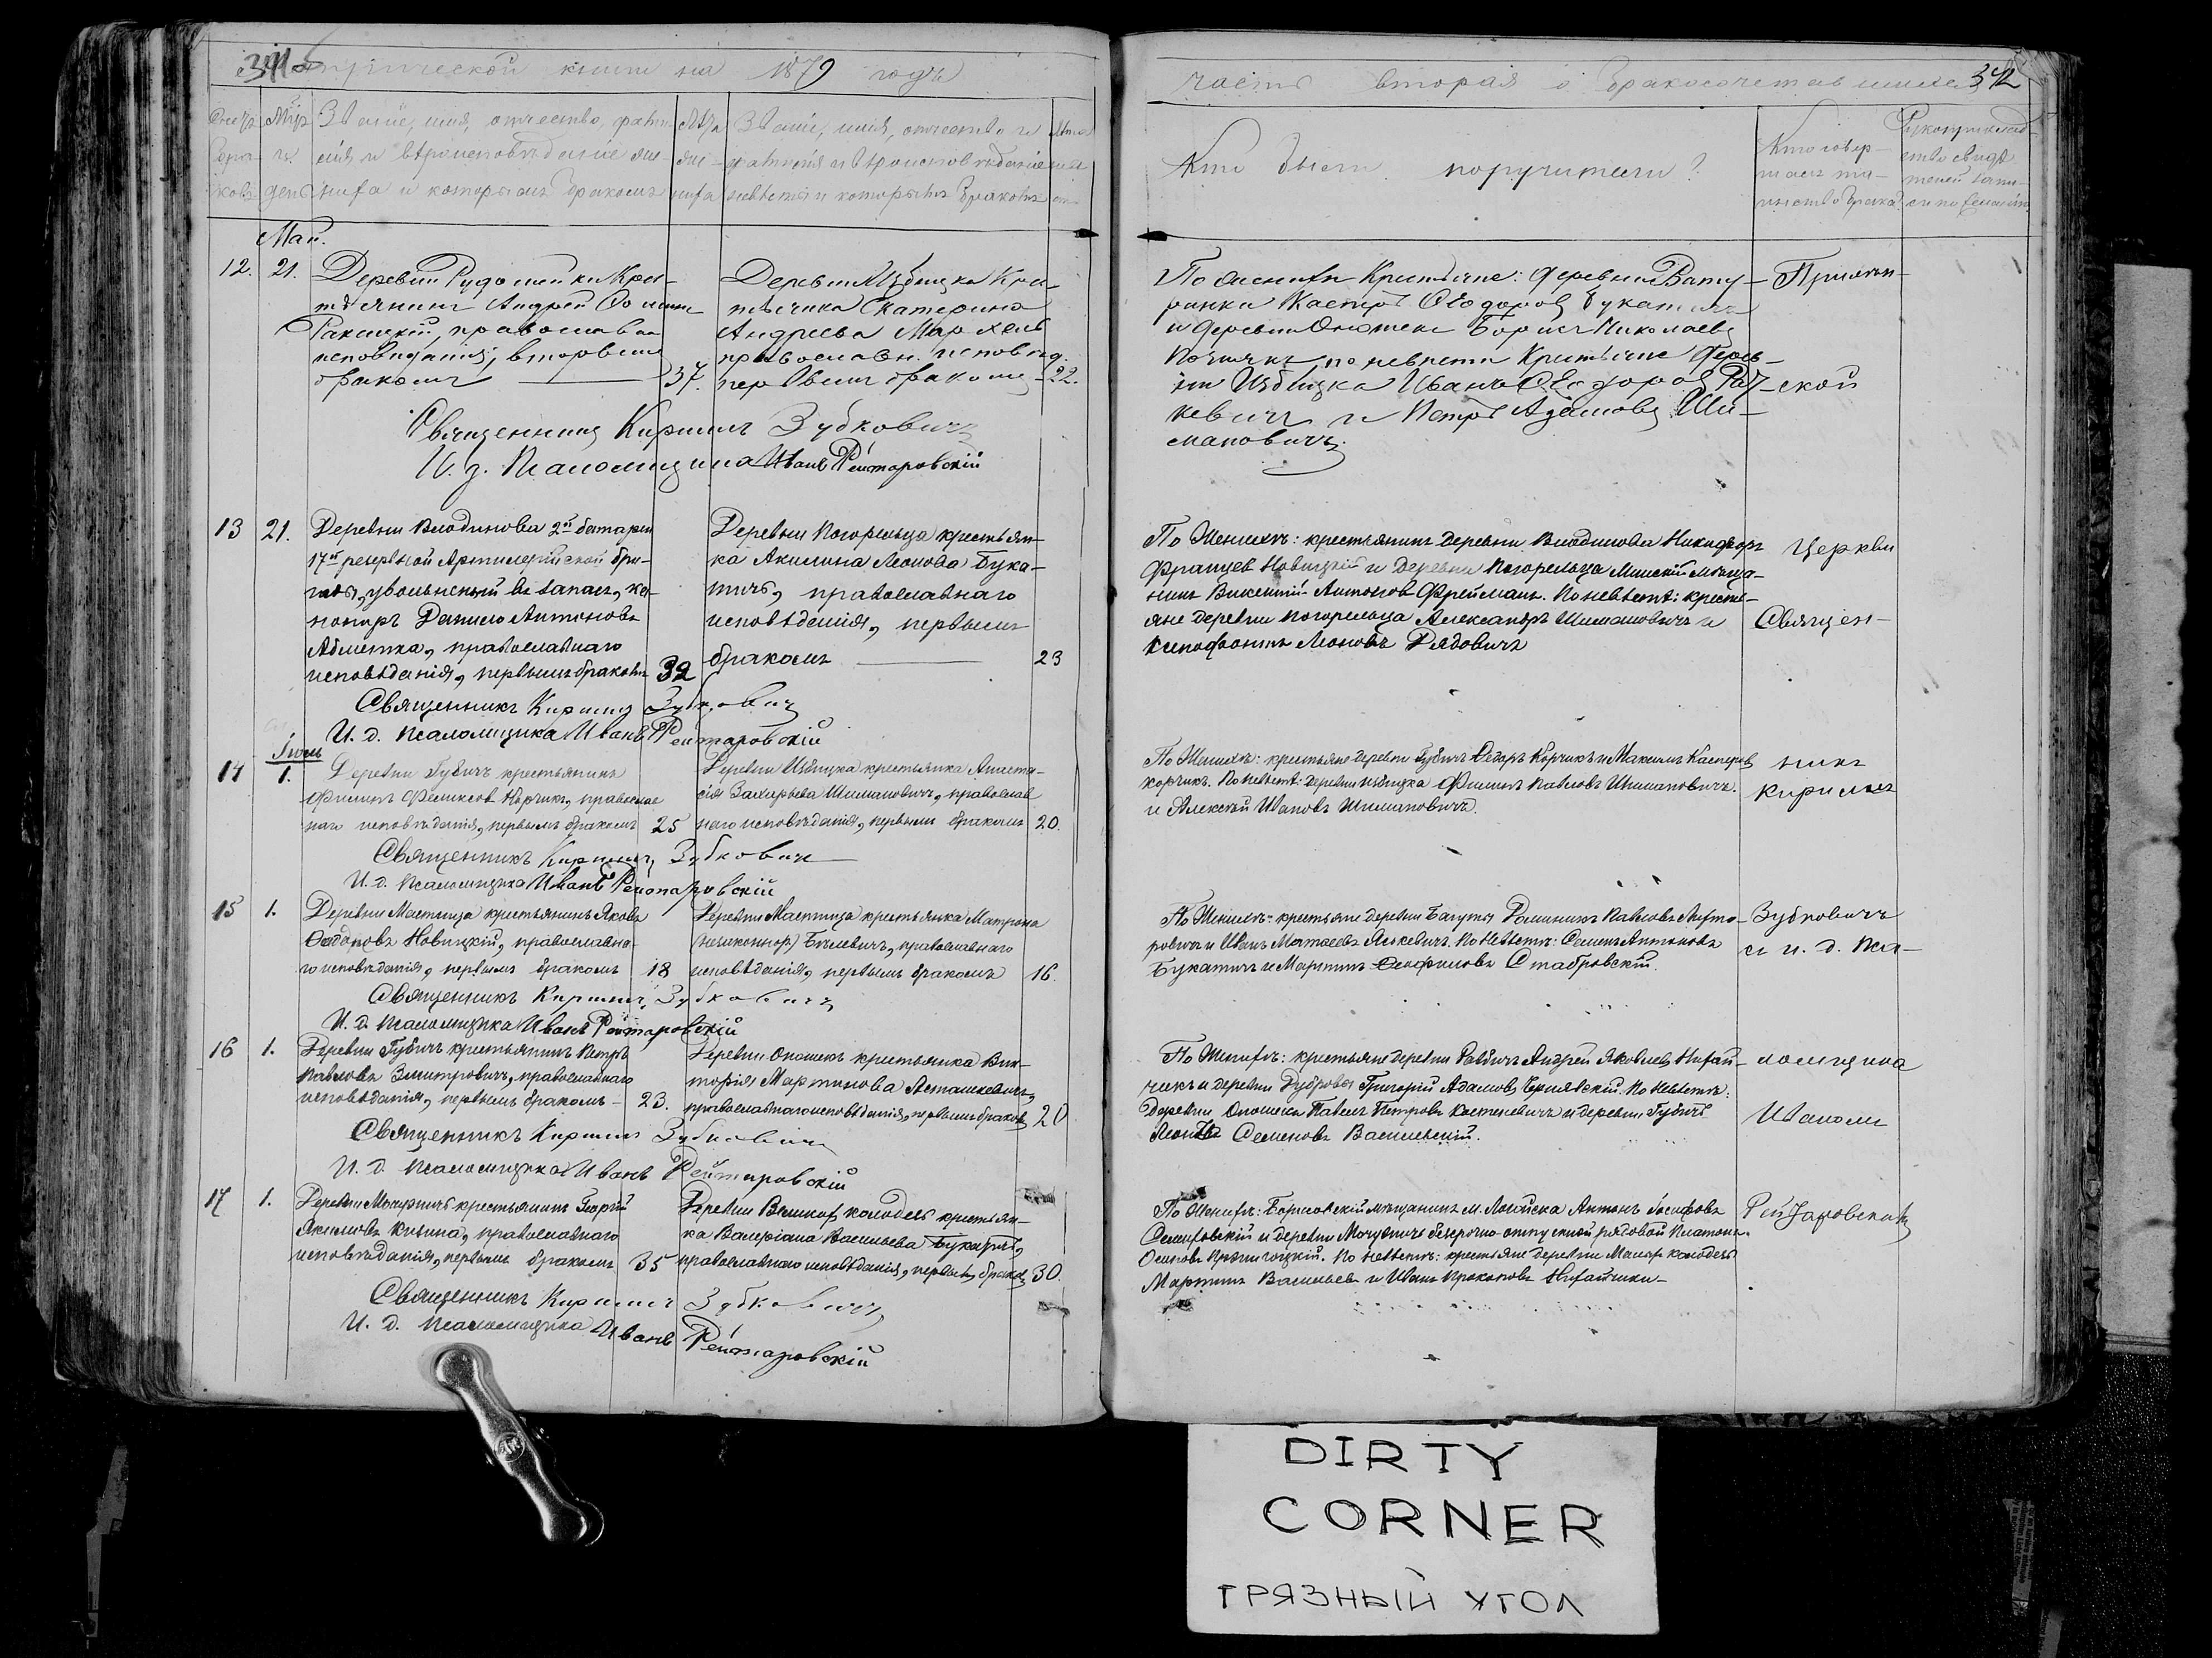 341
метрической книги на 1879 годъ
Званіе, имя, отчество, фами-
лія и вѣроисповѣданіе же-
ниха и которымъ бракомъ
Лѣта
же-
ниха
Званіе, имя, отчество и
фамилія и вѣроисповѣданіе
невѣсты и которымъ бракомъ
Май.
12. 21.
Деревни Рудошейки Крес-
тьянинъ Андрей
Ракицкій, православнаго
исповѣданія, вторымъ
бракомъ 37.
Деревни Избицка Крес-
тьянка Екатерина
Андреева
православн. исповѣд.
первымъ бракомъ 22.
Священникъ Кириллъ Зубковичъ
И. д. Псаломщика Иванъ Рейтаровскій
13 21.
Деревни Влодинова 2й батареи
17й резервной Артиллерійской бри-
гады, увольненный въ запасъ, ка-
нониръ Данило Антоновъ
Абметка, православнаго
исповѣданія, первымъ бракомъ 32
Деревни Погорельца крестьян-
ка Акилина Леонова Бука-
тичъ, православнаго
исповѣданія, первымъ
бракомъ 23
Священникъ Кириллъ Зубковичъ
И. д. Псаломщика Иванъ Рейтаровскій
Іюль
14 1.
Деревни Губичъ крестьянинъ
Филипъ Феликсовъ Корчикъ, православ-
наго исповѣданія, первымъ бракомъ 25
Деревни Избицка крестьянка Анаста-
сія Захарьева Шимановичъ, православ
наго исповѣданія, первымъ бракомъ 20.
Священникъ Кириллъ Зубковичъ
И. д. Псаломщика Иванъ Рейтаровскій
15 1.
Деревни Мастица крестьянинъ Яковъ
Ѳедоровъ Новицкій, православна-
го исповѣданія, первымъ бракомъ 18
Деревни Мастица крестьянка Матрона
(незаконнор) православнаго
исповѣданія, первымъ бракомъ 16.
Священникъ Кириллъ Зубковичъ
И. д. Псаломщика Иванъ Рейтаровскій
16 1.
Деревни Губичъ крестьянинъ Петръ
Павловъ Змитровичъ, православнаго
исповѣданія, первымъ бракомъ 23.
Деревни Опошекъ крестьянка Вик-
торія Мартинова Асташкевичъ,
православнаго исповѣданія, первымъ бракомъ 20
Священникъ Кириллъ Зубковичъ
И. д. Псаломщика Иванъ Рейтаровскій
17 1.
Деревни крестьянинъ Георгій
Якимовъ православнаго
исповѣданія, первымъ бракомъ 35
Деревни колодезь крестьян-
ка Валеріана Васильева Букатичъ,
православнаго исповѣданія, первымъ бракомъ 30.
Священникъ Кириллъ Зубковичъ
И. д. Псаломщика Иванъ
Рейтаровскій
342
часть вторая о бракосочетавшихся
Кто были поручители?
Кто совер-
шалъ та-
инство брака
Рукоприклад-
ство свидѣ
телей запи-
си по желанію
По женихѣ Крестьяне: деревни Бату-
ринки Каспръ Ѳеодоровъ Букатичъ
и деревни Борисъ Николаевъ
по невѣсти Крестьяне дерев-
ни Избицка Иванъ Ѳеодоровъ Рад-
кевичъ и Петръ Адамовъ Ши-
мановичъ.
Приход-
ской
По Женихѣ: крестьянинъ деревни Влодинова Никифоръ
Францевъ Новицкій и деревни Погорельца Минскій мѣща-
нинъ Викентій Антоновъ Фрейманъ. По невѣстѣ: кресть-
яне деревни Погорельца Александръ Шимановичъ и
Ксенофонтъ Леоновъ Радовичъ
Церкви
Священ-
По Женихѣ: крестьяне деревни Губичъ Ѳедоръ Корчикъ и Максимъ Касперовъ
Корчикъ. По невѣстѣ: деревни Избицка Филипъ Павловъ Шимановичъ.
и Алексѣй Ивановъ Шимановичъ.
никъ
Кирилъ
По Женихѣ: крестьяне деревни Доминикъ Павловъ
и Иванъ Матвеевъ Яскевичъ. По Невѣстѣ: Семенъ Антоновъ
Букатичъ и Мартинъ Ѳеофиловъ Стабровскій.
Зубковичъ
и и. д. Пса-
По Женихѣ: крестьяне деревни Андрей Яковлевъ Нифай-
чикъ и деревни Дубровы Григорій Адамовъ По Невѣстѣ:
деревни Опошекъ Павелъ Петровъ Костеневичъ и деревни Губичъ
Леонъ Семеновъ Василевскій.
ломщика
Иваномъ
По Женихѣ: Борисовскій мѣщанинъ м. Логойска Антонъ Іосифовъ
и деревни безсрочно-отпускной рядовой Платонъ
Осиповъ По невѣстѣ: крестьяне деревни колодезь
Мартинъ Васильевъ и Иванъ Прокоповъ Нифайчики-
Рейтаровскимъ
DIRTY
CORNER
ГРЯЗНЫЙ УГОЛ